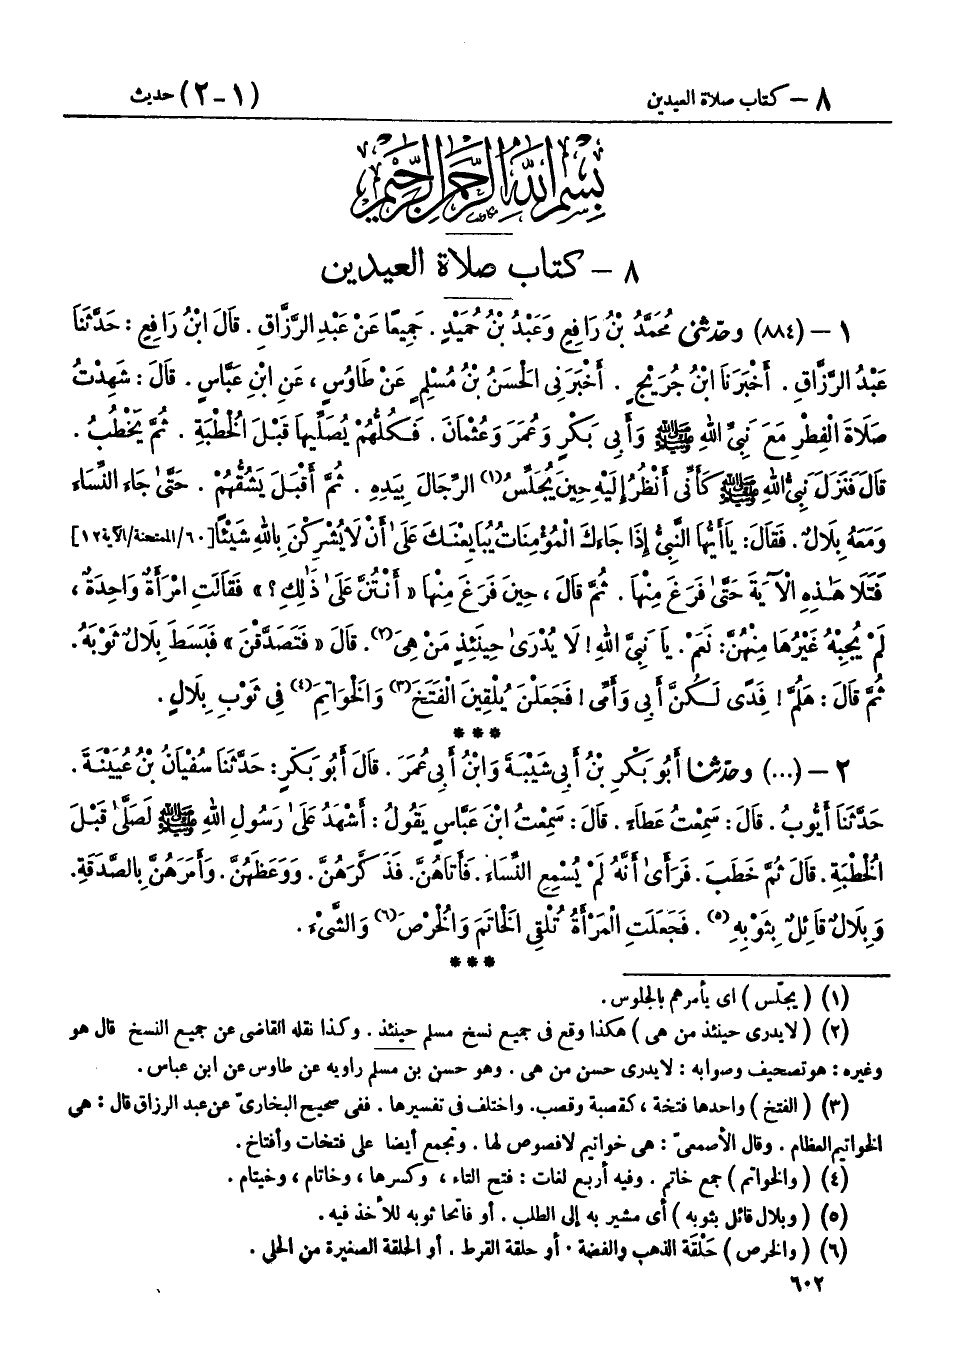 ٨ – كتاب صلاة العيدين
(١ – ٢) حديث
بِسْمِ اللهِ الرَّحْمٰنِ الرَّحِيمِ
٨ – كتاب صلاة العيدين
١ – (٨٨٤) وحدّثنى مُحَمَّدُ بْنُ رَافِعٍ وَعَبْدُ بْنُ حُمَيْدٍ . جَمِيعًا عَنْ عَبْدِ الرَّزَّاقِ . قَالَ ابْنُ رَافِعٍ : حَدَّثَنَا
عَبْدُ الرَّزَّاقِ . أَخْبَرَنَا ابْنُ جُرَيْجٍ . أَخْبَرَنِى الْحَسَنُ بْنُ مُسْلِمٍ عَنْ طَاوُسٍ ، عَنِ ابْنِ عَبَّاسٍ . قَالَ : شَهِدْتُ
صَلَاةَ الْفِطْرِ مَعَ نَبِىِّ اللهِ ﷺ وَأَبِى بَكْرٍ وَعُمَرَ وَعُثْمَانَ . فَكُلُّهُمْ يُصَلِّيهَا قَبْلَ الْخُطْبَةِ . ثُمَّ يَخْطُبُ .
قَالَ فَنَزَلَ نَبِىُّ اللهِ ﷺ كَأَنِّى أَنْظُرُ إِلَيْهِ حِينَ يُجَلِّسُ(١) الرِّجَالَ بِيَدِهِ . ثُمَّ أَقْبَلَ يَشُقُّهُمْ . حَتَّىٰ جَاءَ النِّسَاءَ
وَمَعَهُ بِلَالٌ . فَقَالَ : يَاأَيُّهَا النَّبِىُّ إِذَا جَاءَكَ الْمُؤْمِنَاتُ يُبَايِعْنَكَ عَلَىٰ أَنْ لَا يُشْرِكْنَ بِاللهِ شَيْئًا [٦٠/الممتحنة/الآية ١٢]
فَتَلَا هَٰذِهِ الْآيَةَ حَتَّىٰ فَرَغَ مِنْهَا . ثُمَّ قَالَ ، حِينَ فَرَغَ مِنْهَا « أَنْتُنَّ عَلَىٰ ذَٰلِكِ ؟ » فَقَالَتِ امْرَأَةٌ وَاحِدَةٌ ،
لَمْ يُجِبْهُ غَيْرُهَا مِنْهُنَّ : نَعَمْ . يَا نَبِىَّ اللهِ ! لَا يُدْرَىٰ حِينَئِذٍ مَنْ هِىَ(٢) . قَالَ « فَتَصَدَّقْنَ » فَبَسَطَ بِلَالٌ ثَوْبَهُ .
ثُمَّ قَالَ : هَلُمَّ ! فِدًى لَكُنَّ أَبِى وَأُمِّى ! فَجَعَلْنَ يُلْقِينَ الْفَتَخَ(٣) وَالْخَوَاتِمَ(٤) فِى ثَوْبِ بِلَالٍ .
***
٢ – (...) وحدّثنا أَبُو بَكْرِ بْنُ أَبِى شَيْبَةَ وَابْنُ أَبِى عُمَرَ . قَالَ أَبُو بَكْرٍ : حَدَّثَنَا سُفْيَانُ بْنُ عُيَيْنَةَ .
حَدَّثَنَا أَيُّوبُ . قَالَ : سَمِعْتُ عَطَاءً . قَالَ : سَمِعْتُ ابْنَ عَبَّاسٍ يَقُولُ : أَشْهَدُ عَلَىٰ رَسُولِ اللهِ ﷺ لَصَلَّىٰ قَبْلَ
الْخُطْبَةِ . قَالَ ثُمَّ خَطَبَ . فَرَأَىٰ أَنَّهُ لَمْ يُسْمِعِ النِّسَاءَ . فَأَتَاهُنَّ . فَذَكَّرَهُنَّ . وَوَعَظَهُنَّ . وَأَمَرَهُنَّ بِالصَّدَقَةِ .
وَبِلَالٌ قَائِلٌ بِثَوْبِهِ(٥) . فَجَعَلَتِ الْمَرْأَةُ تُلْقِى الْخَاتَمَ وَالْخُرْصَ(٦) وَالشَّىْءَ .
***
(١) ( يجلّس ) اى يأمرهم بالجلوس .
(٢) ( لايدرى حينئذ من هى ) هكذا وقع فى جميع نسخ مسلم حينئذ . وكذا نقله القاضى عن جميع النسخ قال هو
وغيره : هو تصحيف وصوابه : لايدرى حسن من هى . وهو حسن بن مسلم راويه عن طاوس عن ابن عباس .
(٣) ( الفتخ ) واحدها فتخة ، كقصبة وقصب . واختلف فى تفسيرها . ففى صحيح البخارىّ عن عبد الرزاق قال : هى
الخواتيم العظام . وقال الأصمعىّ : هى خواتيم لافصوص لها . وتجمع أيضا على فتخات وأفتاخ .
(٤) ( والخواتم ) جمع خاتم . وفيه أربع لغات : فتح التاء ، وكسرها ، وخاتام ، وخيتام .
(٥) ( وبلال قائل بثوبه ) أى مشير به إلى الطلب . أو فاتحا ثوبه للأخذ فيه .
(٦) ( والخرص ) حَلْقَة الذهب والفضة . أو حلقة القرط . أو الحلقة الصغيرة من الحلى .
٦٠٢